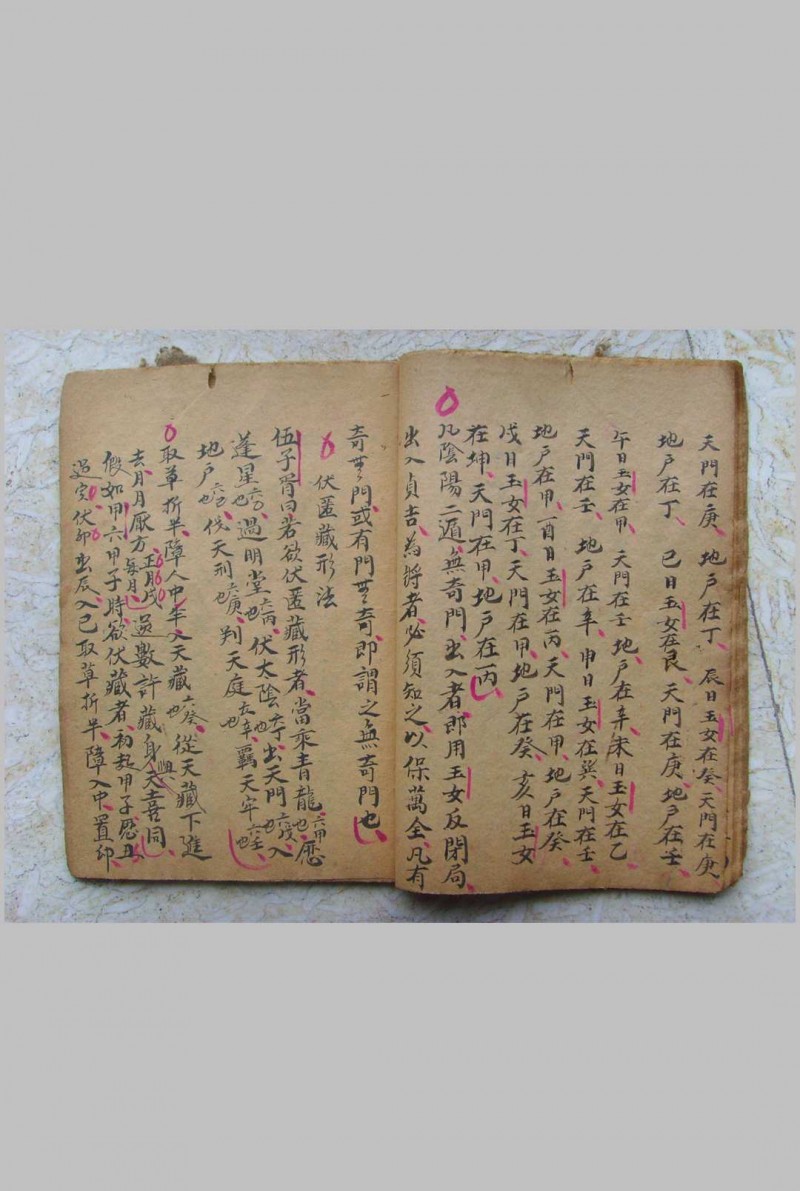 天門在庚、地戶在丁、辰日玉女在癸、天門在庚
地戶在丁、巳日玉女在艮、天門在庚、地戶在壬、
午日玉女在甲、天門在壬、地戶在辛、未日玉女在乙
天門在壬、地戶在辛、申日玉女在巽、天門在壬、
地戶在甲、酉日玉女在丙、天門在甲、地戶在癸、
戌日玉女在丁、天門在甲、地戶在癸、亥日玉女
在坤、天門在甲、地戶在丙、
凡陰陽二遁、無奇門、出入者、即用玉女反閉局、
出入貞吉、為將者、必須知之、以保萬全、凡有
奇無門、或有門無奇、即謂之無奇門也、
伏匿藏形法
伍子胥曰若欲伏匿藏形者、當乘青龍、六甲也、歷
蓬星、六乙也、過明堂、六丙也、伏太陰、六丁也、出天門、六戊也、入
地戶、六己也、伐天刑、六庚也、判天庭、六辛也、羈天牢、六壬也、
取草折半、障人中、半入天藏、六癸也、從天藏下進
去、月月厭方、正月戌每月、過數許藏身、與天喜同
假如甲六甲子時、欲伏藏者、初起甲子、歷丑
過寅、伏卯、出辰、入巳、取草折半、障入中、置卯、